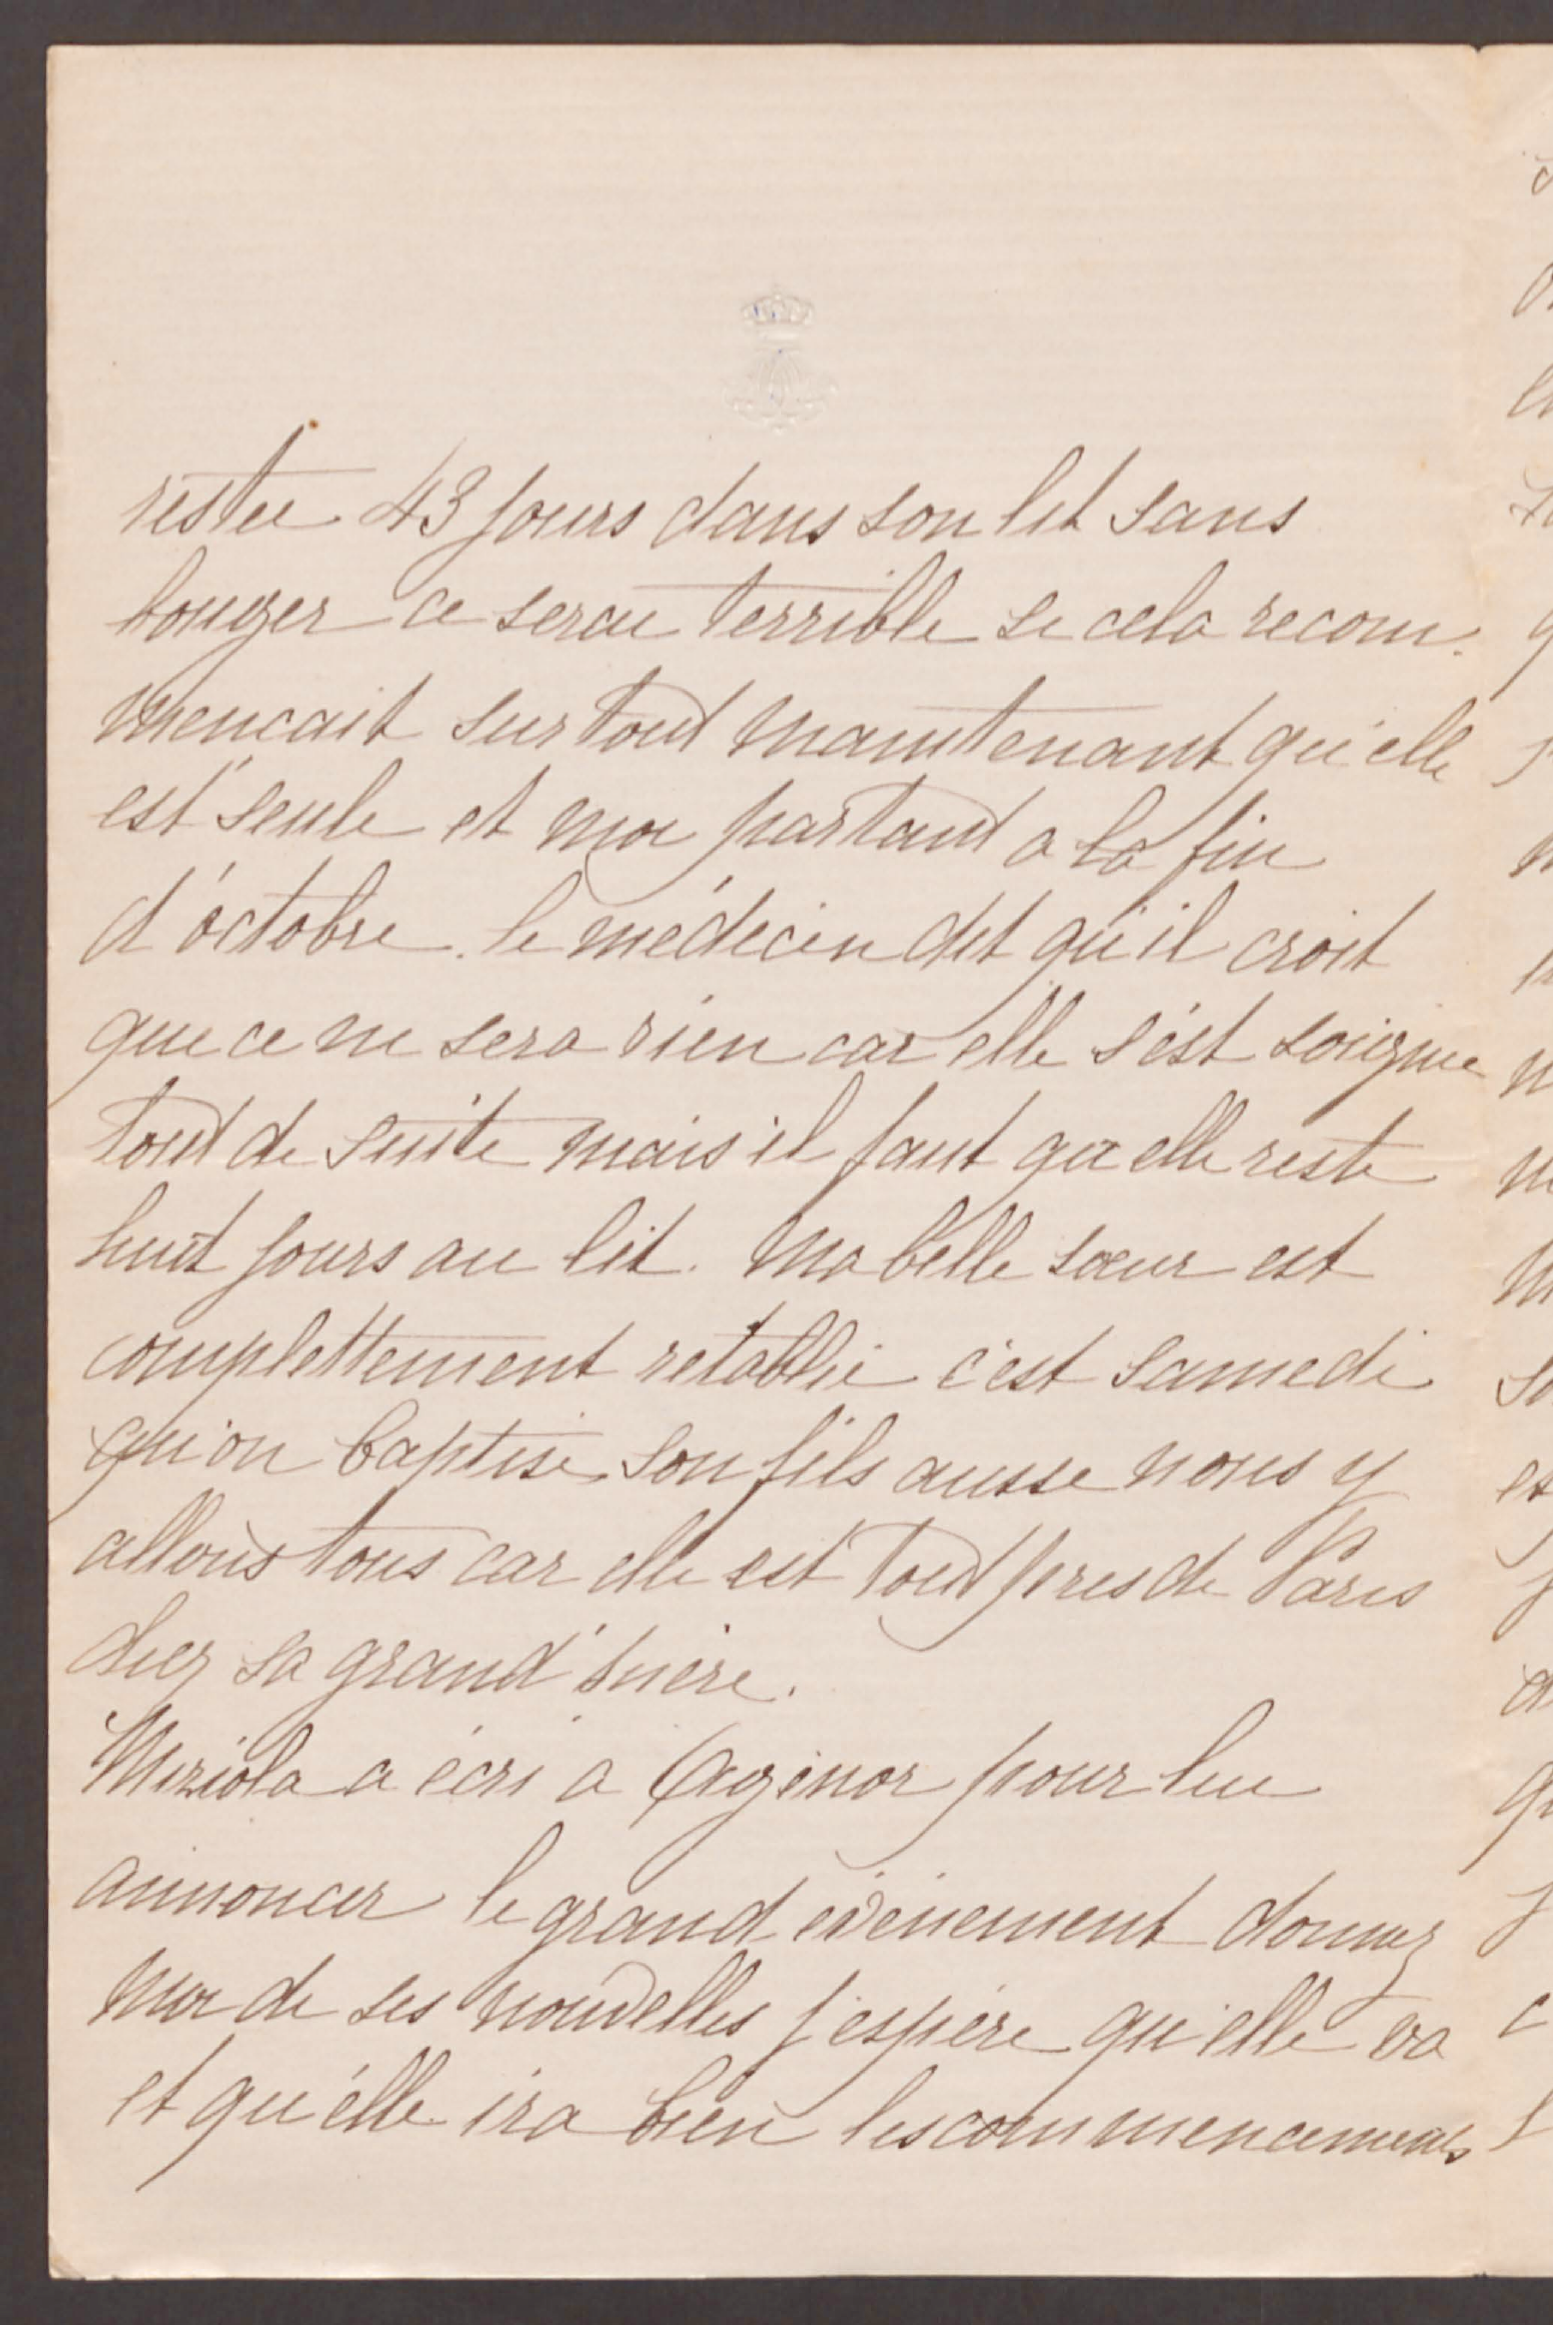 restée 43 jours dans son lit sans
bouger ce serai terrible si cela recom-
mencait surtout maintenant qu'elle
est seule et moi partant a la fin
d'octobre. le médecin dit qu'il croit
que ce ne sera rien car elle s'est soignee
tout de suite mais il faut qu'elle reste
huit jours au lit. Ma belle sœur est
complettement retablie c'est samedi
qu'on baptise son fils aussi nous y
allons tous car elle est tout pres de Paris
chez sa grand'mère.
Miziola a écri a Agénor pour lui
annoncer le grand évènement donnez
moi de ses nouvelles j'espère qu'elle va
et qu'elle ira bien les commencements